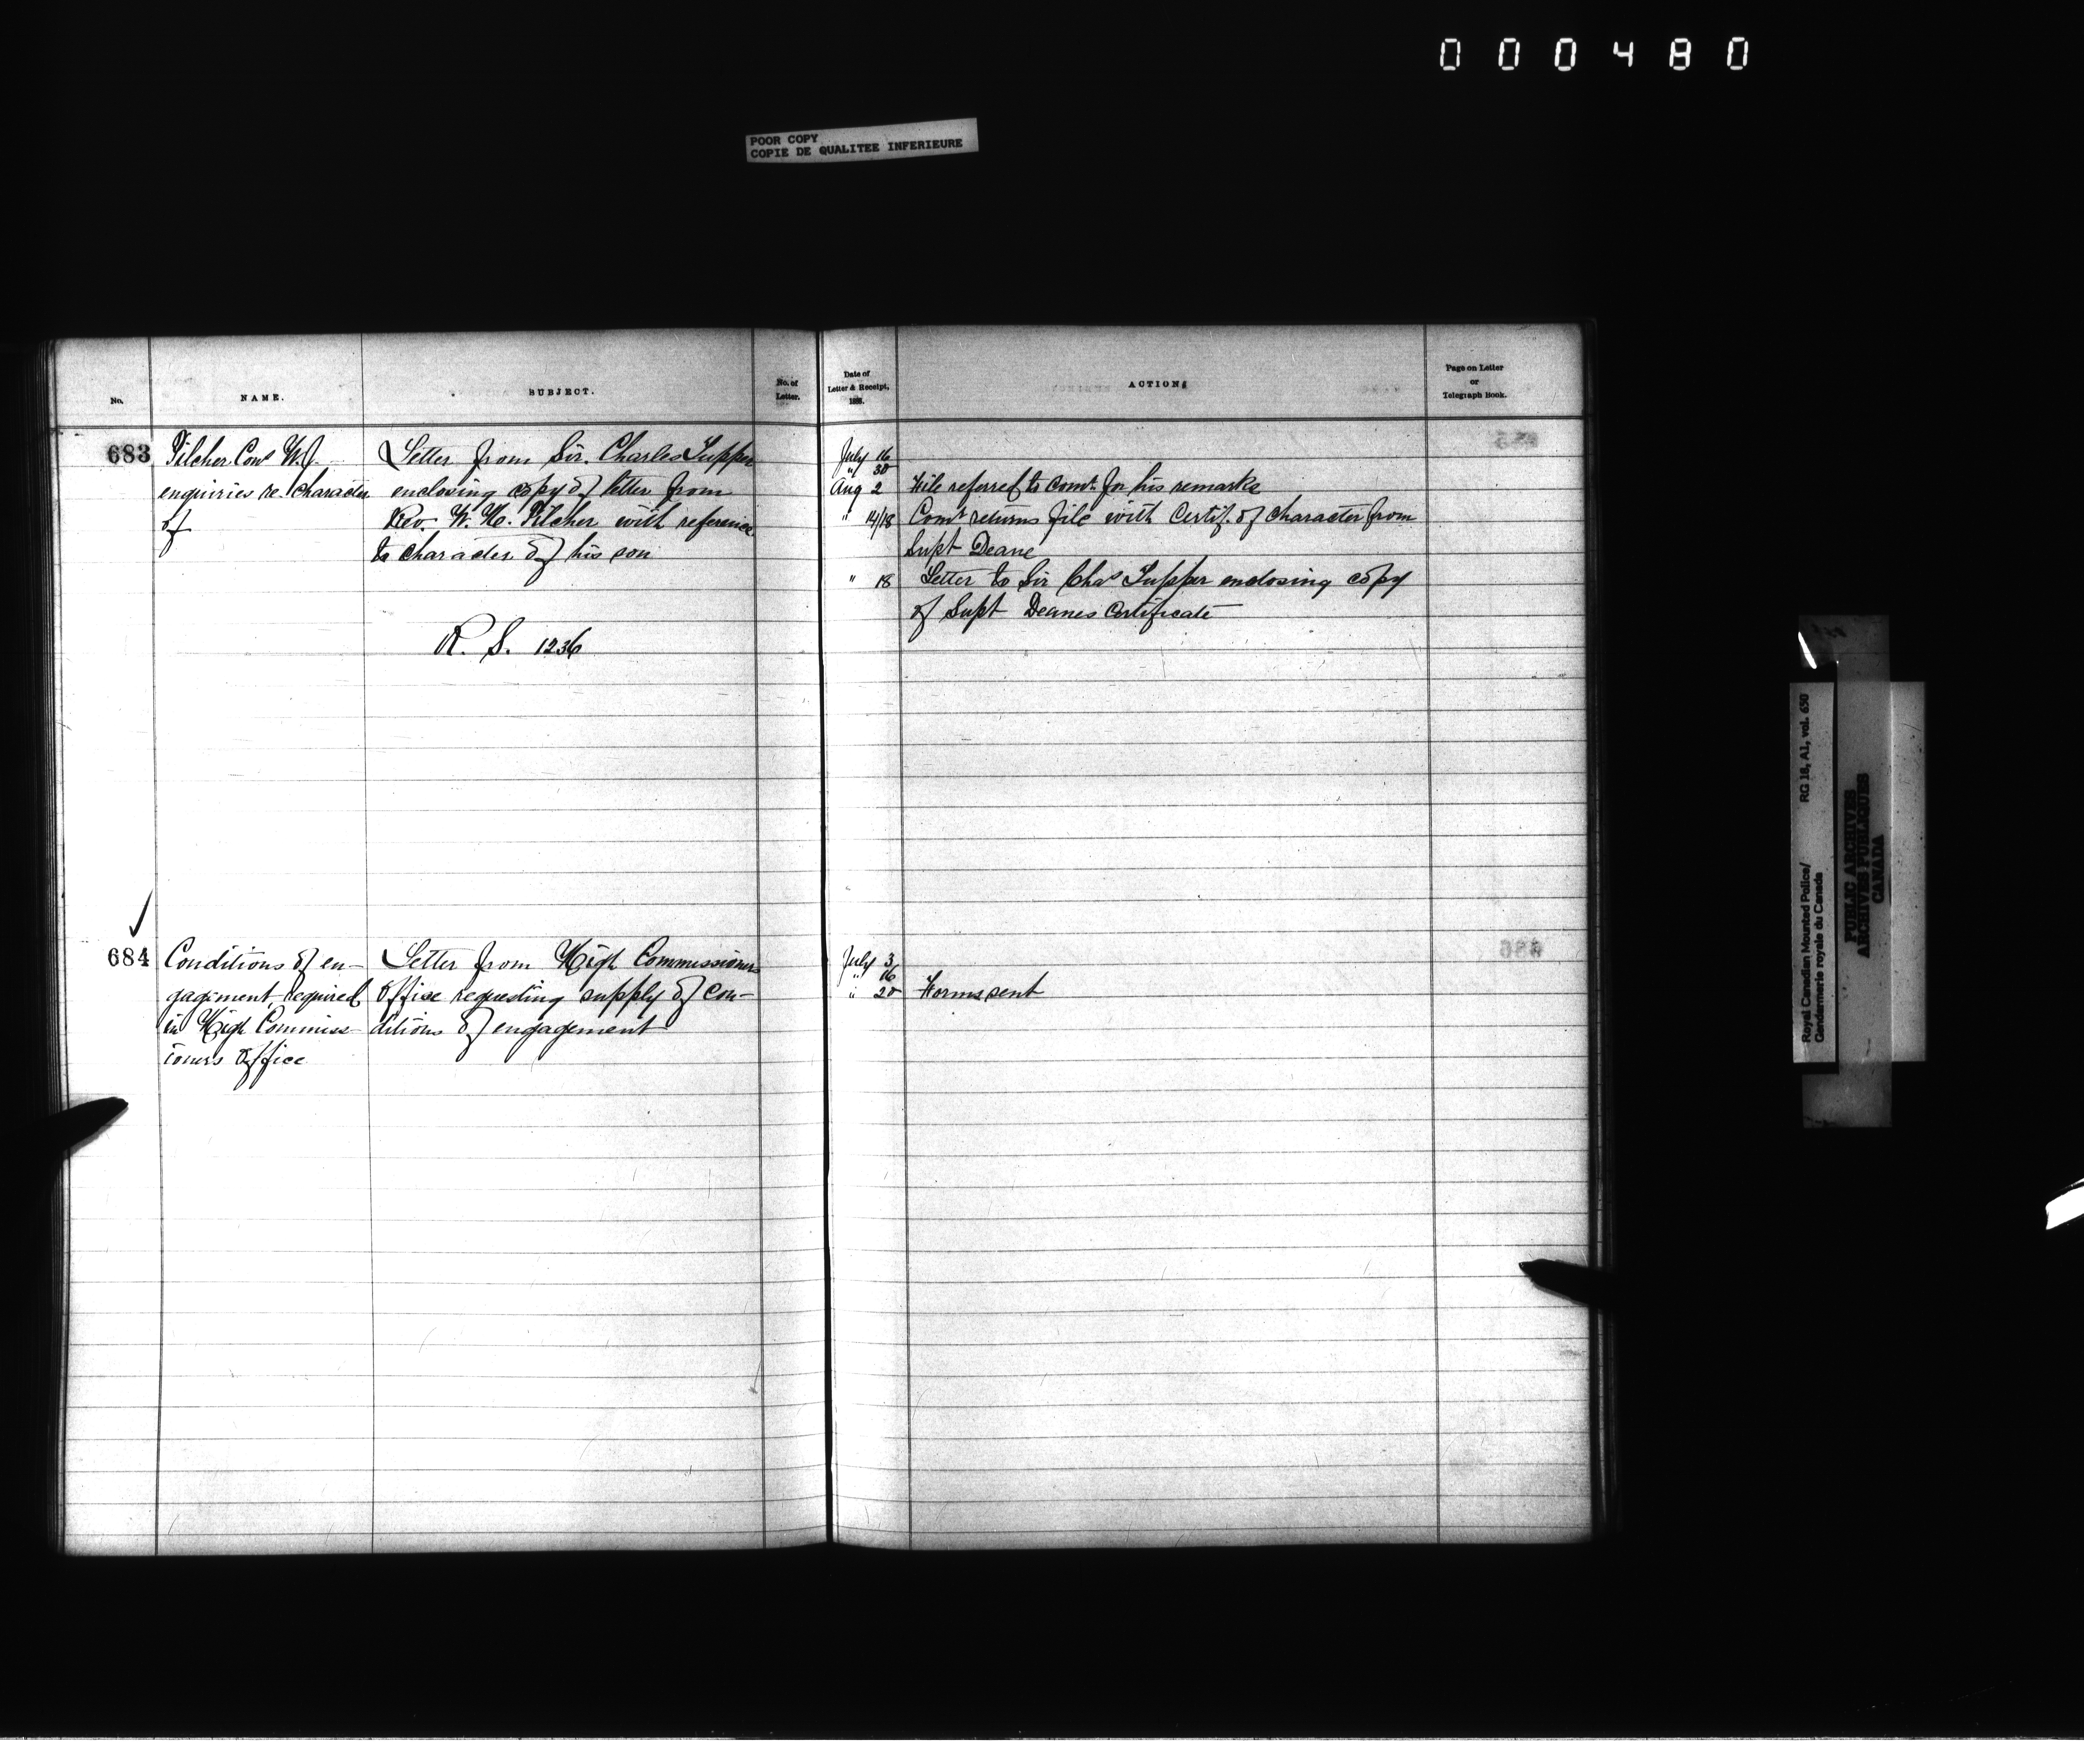 000480
POOR COPY
COPIE DE QUALITEE INFERIEURE
No.
NAME.
SUBJECT.
No. of
Letter.
Date of
Letter & Receipt,
188.
ACTION
Page on Letter
or
Telegraph Book.
683
Pilcher Cons W.J.
enquiries re. character
of
Letter from Sir. Charles Tupper
enclosing copy of letter from
Rev. W. H. Pilcher with reference
to character of his son
R. S. 1236
July 16
" 30
Aug 2 File referred to Comr. for his remarks
" 14/18 Comr returns file with Certif. of character from
Supt Deane
" 18 Letter to Sir Chas Tupper enclosing copy
of Supt Deanes Certificate
684
Conditions of en-
gagement, required
in High Commiss-
ioners Office
Letter from High Commissioners
Office requesting supply of con-
ditions of engagement
July 3
" 16
" 20 Forms sent
Royal Canadian Mounted Police/
Gendarmerie royale du Canada
RG 18, A1, vol. 650
PUBLIC ARCHIVES
ARCHIVES PUBLIQUES
CANADA